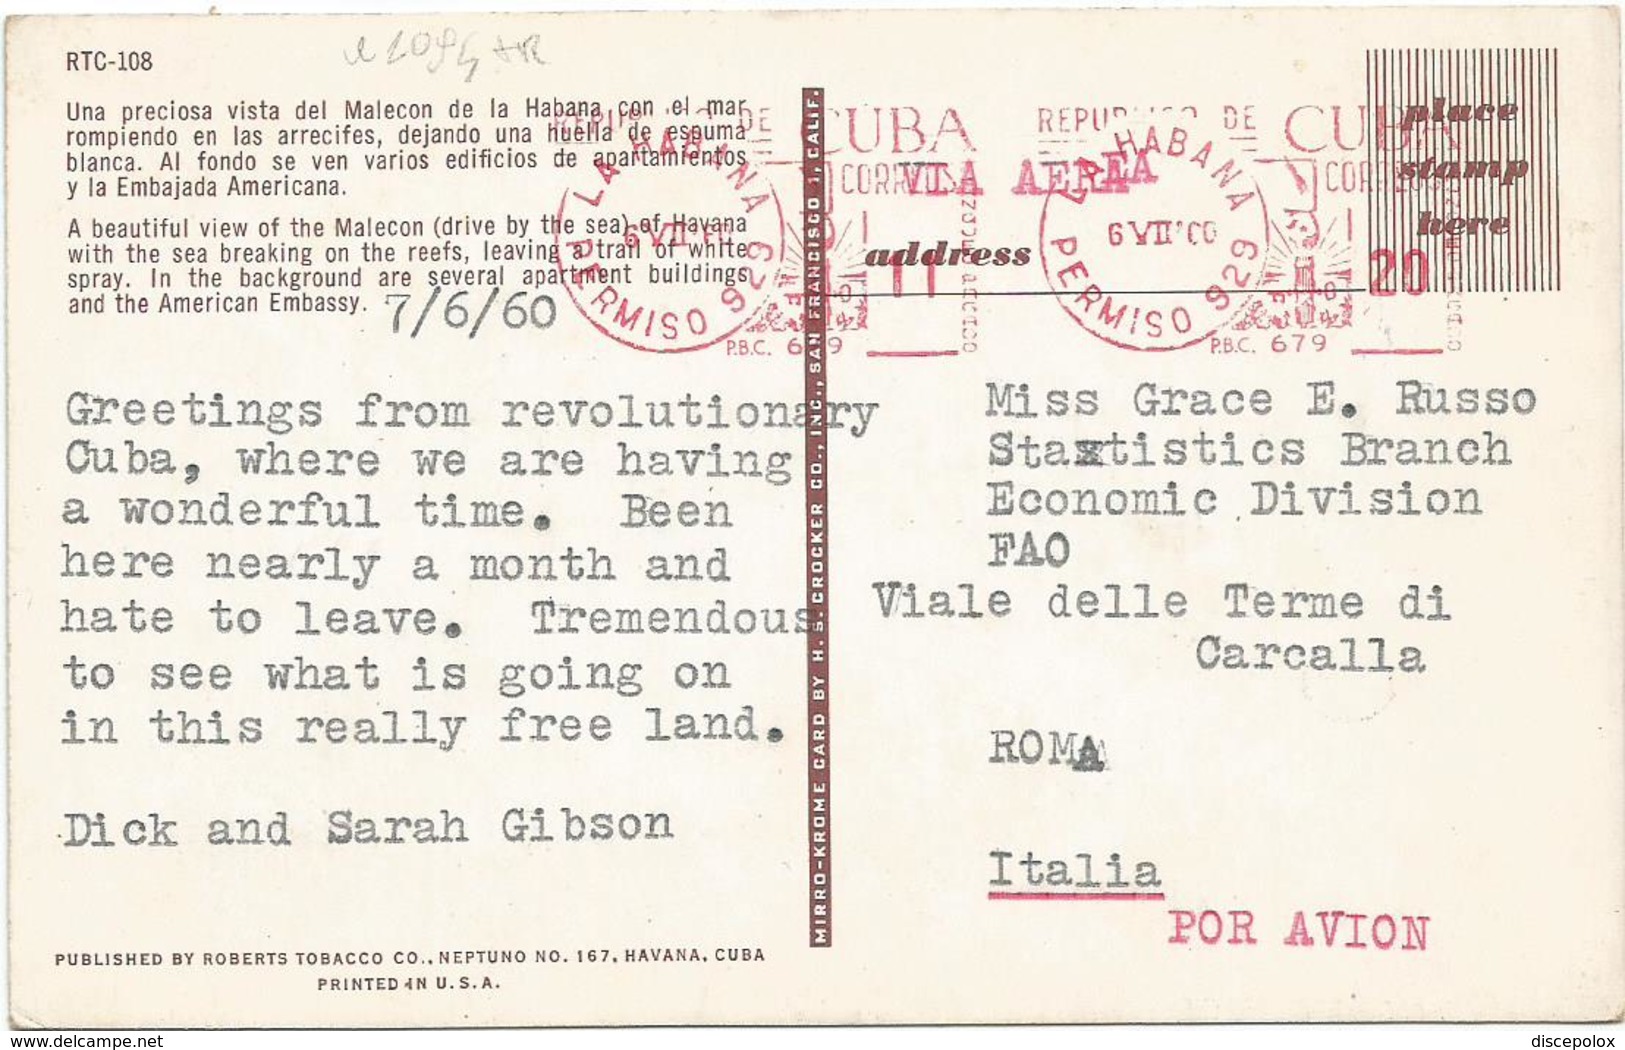 RTC-108
Una preciosa vista del Malecon de la Habana con el mar
rompiendo en las arrecifes, dejando una huella de espuma
blanca. Al fondo se ven varios edificios de apartamientos
y la Embajada Americana.
A beautiful view of the Malecon (drive by the sea) of Havana
with the sea breaking on the reefs, leaving a trail of white
spray. In the background are several apartment buildings
and the American Embassy.
7/6/60
DE CUBA
CORREOS
LA HABANA
6 VII
PERMISO 929
P.B.C. 679
11
VIA AEREA
REPUBLICA DE CUBA
CORREOS
LA HABANA
6 VII
PERMISO 929
P.B.C. 679
20
place
stamp
here
address
Greetings from revolutionary
Cuba, where we are having
a wonderful time. Been
here nearly a month and
hate to leave. Tremendous
to see what is going on
in this really free land.
Dick and Sarah Gibson
MIRRO-KROME CARD BY H. S. CROCKER CO., INC., SAN FRANCISCO 1, CALIF.
Miss Grace E. Russo
Staxtistics Branch
Economic Division
FAO
Viale delle Terme di
Carcalla
ROMA
Italia
POR AVION
PUBLISHED BY ROBERTS TOBACCO CO., NEPTUNO NO. 167, HAVANA, CUBA
PRINTED IN U.S.A.
www.delcampe.net
discepolox